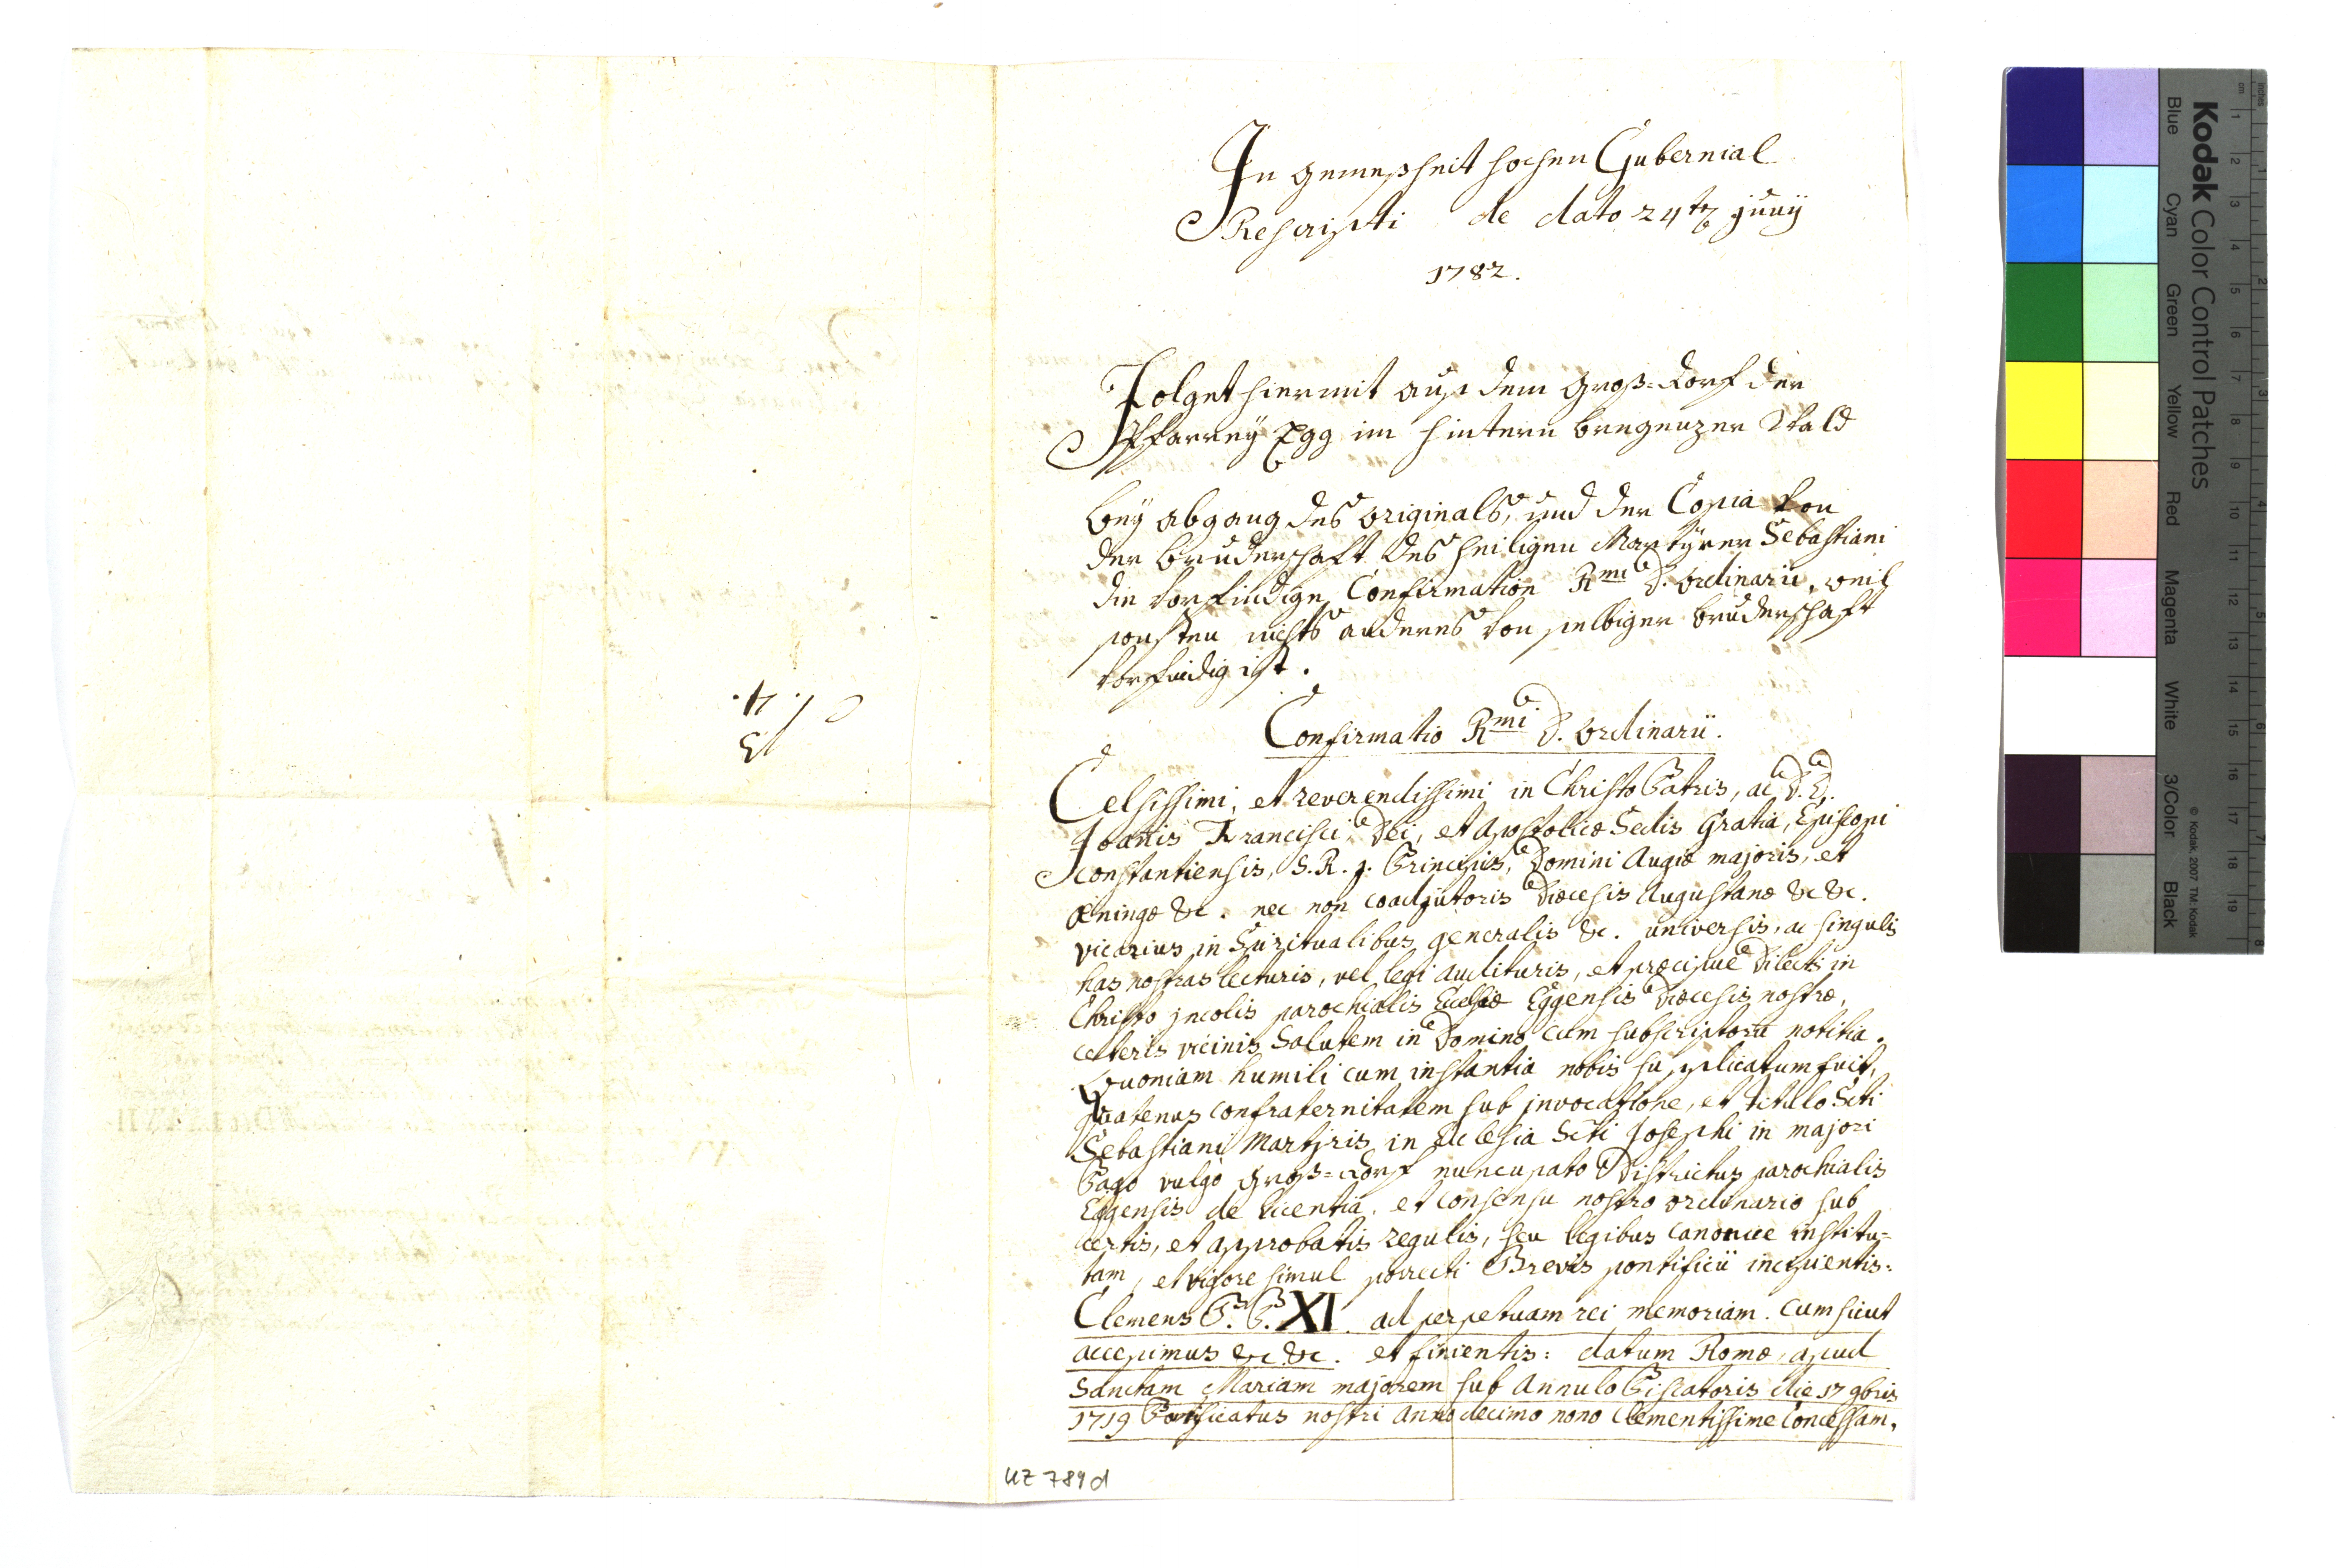 In gemeßheit hohen Gubernial
Rescripti de dato 24ten Junÿ
1782.
Folget hiermit auß dem Groß=Dorf der
Pfarreÿ Egg im hintern bregenzer Wald
beÿ abgang des originals, und der Copia von
der bruderschaft des heiligen Martÿrer Sebastiani
die vorfindige Confirmation Rmi D. ordinarii, weil
sonsten nichts anderes von selbiger bruderschaft
vorfindig ist.
Confirmatio Rmi D. ordinarii.
Celsissimi, et reverendissimi in Christo Patris, ac D. D.
Joañis Francisci, Dei, et Apostolicæ Sedis Gratia, Episcopi
constantiensis, S. R. J. Principis, Domini Augiæ majoris, et
Æningæ &c. nec non coadjutoris Diœcesis Augustanæ &c &c.
vicarius in Spiritualibus generalis &c. universis, ac singulis
has nostras lecturis, vel legi audituris, et præcipue Dilectis in
Christo jncolis parochialis Ecclesiæ Eggensis Diœcesis nostræ,
ceteris vicinis Salutem in Domino cum subscriptorũ notitia.
Quoniam humili cum instantia nobis supplicatum fuit,
quatenus confraternitatem sub jnvocatione, et titulo Scti
Sebastiani Martyris in Ecclesia Scti Josephi in majori
Pago vulgo Groß=Dorf nuncupato Districtus parochialis
Eggensis de licentia, et consensu nostro ordinario sub
certis, et approbatis regulis, seu legibus canonice institu=
tam, et vigore simul porrecti Brevis pontificii incipientis:
Clemens P. P. XI. ad perpetuam rei memoriam. Cum sicut
accepimus &c &c. et finientis: datum Romæ, apud
Sanctam Mariam majorem sub Annulo Piscatoris die 17 9bris
1719 Pontificatus nostri Anno decimo nono clementissime Concessam,
UZ 789d
Kodak Color Control Patches
© Kodak, 2007 TM: Kodak
Blue Cyan Green Yellow Red Magenta White 3/Color Black
cm 1 2 3 4 5 6 7 8 9 10 11 12 13 14 15 16 17 18 19
inches 1 2 3 4 5 6 7 8